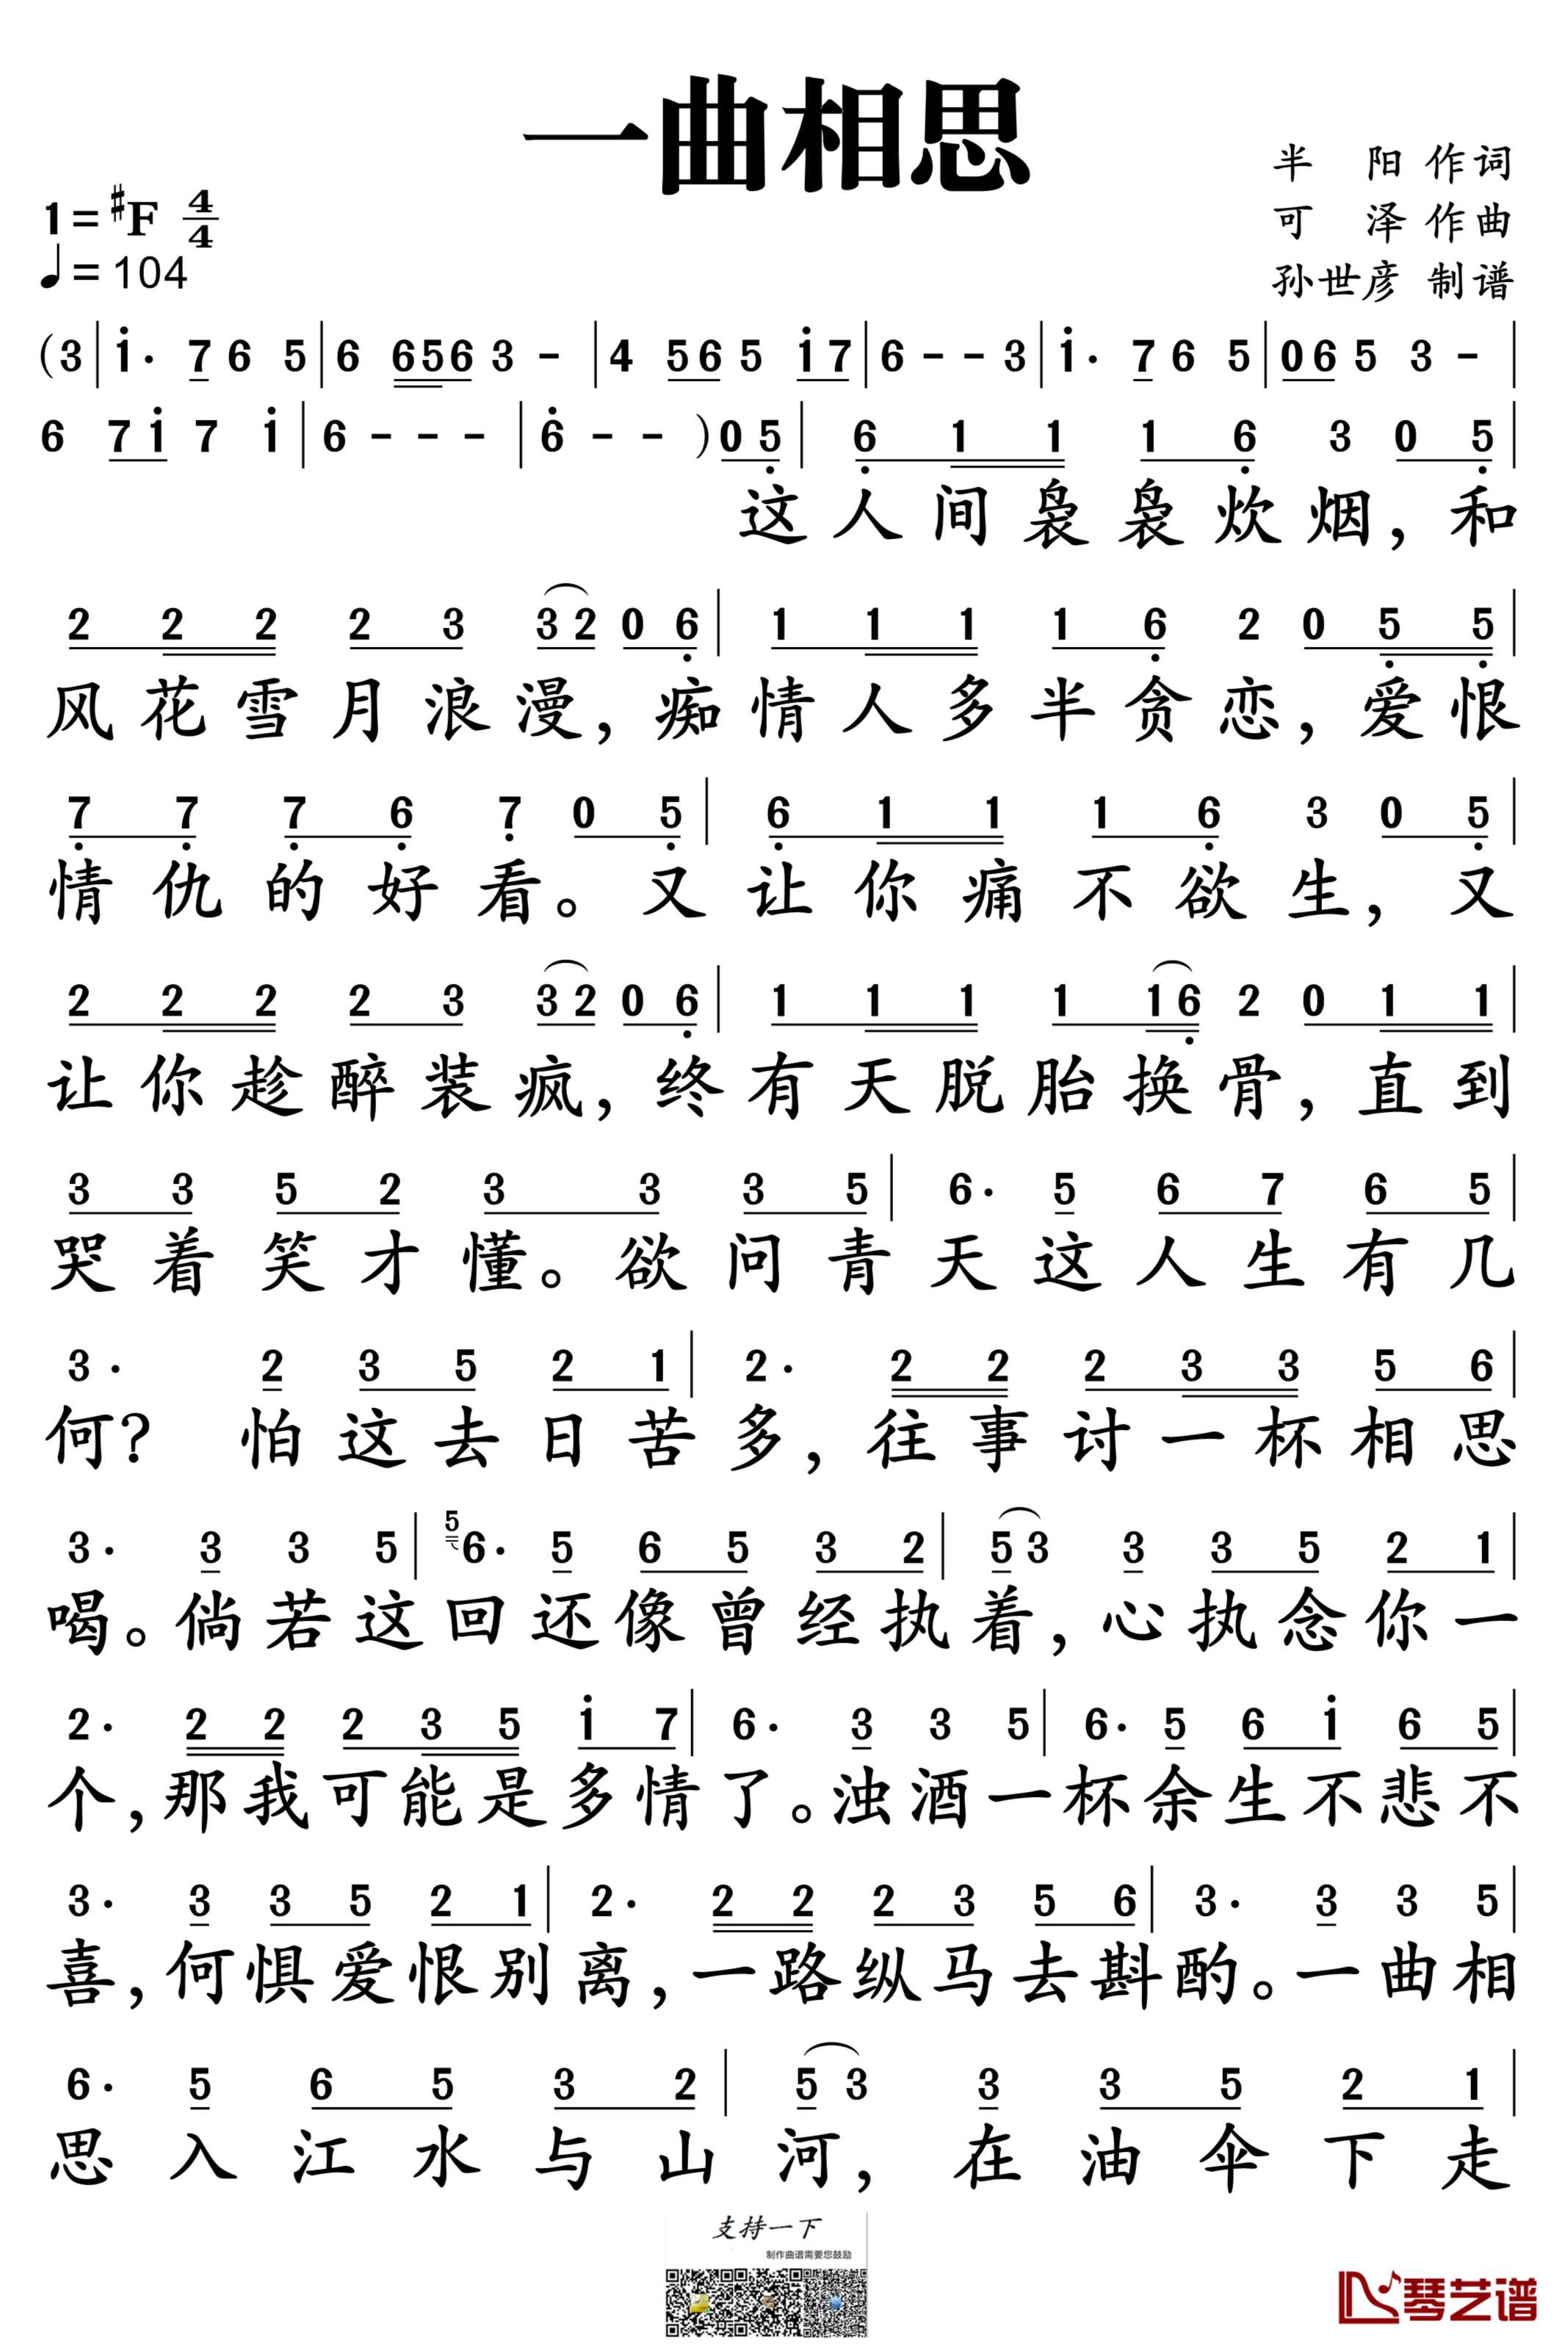 一曲相思
半 阳 作词
1=#F 4/4
可 泽 作曲
♩=104
孙世彦 制谱
(3|i· 7 6 5|6 656 3 -|4 56 5 i7|6 - - 3|i· 7 6 5|06 5 3 -|
6 7i 7 i|6 - - -|6 - - )05|6 1 1 1 6 3 0 5|
这人间袅袅炊烟,和
2 2 2 2 3 32 0 6|1 1 1 1 6 2 0 5 5|
风花雪月浪漫,痴情人多半贪恋,爱恨
7 7 7 6 7 0 5|6 1 1 1 6 3 0 5|
情仇的好看。又让你痛不欲生,又
2 2 2 2 3 32 0 6|1 1 1 1 16 2 0 1 1|
让你趁醉装疯,终有天脱胎换骨,直到
3 3 5 2 3 3 3 5|6· 5 6 7 6 5|
哭着笑才懂。欲问青天这人生有几
3· 2 3 5 2 1|2· 2 2 2 3 3 5 6|
何? 怕这去日苦多,往事讨一杯相思
3· 3 3 5|5 6· 5 6 5 3 2|53 3 3 5 2 1|
喝。倘若这回还像曾经执着,心执念你一
2· 2 2 2 3 5 i 7|6· 3 3 5|6· 5 6 i 6 5|
个,那我可能是多情了。浊酒一杯余生不悲不
3· 3 3 5 2 1|2· 2 2 2 3 5 6|3· 3 3 5|
喜,何惧爱恨别离,一路纵马去斟酌。一曲相
6· 5 6 5 3 2|5 3 3 3 5 2 1|
思入江水与山河,在油伞下走
支持一下
制作曲谱需要您鼓励
琴艺谱